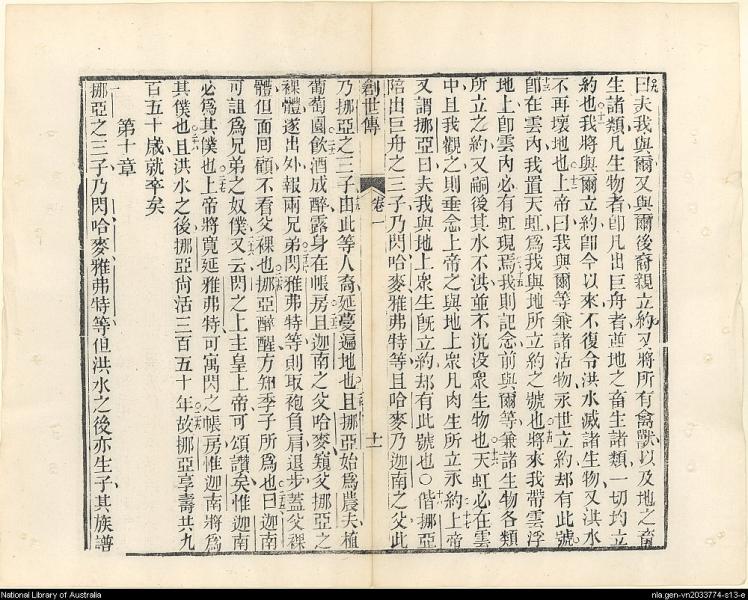 曰夫我與爾又與爾後裔親立約又將所有禽獸以及地之畜
生諸類凡生物者卽凡出巨舟者並地之畜生諸類一切均立
約也我將與爾立約卽今以來不復令洪水滅諸生物又洪水
不再壞地也上帝曰我與爾等兼諸活物永世立約卻有此號
卽在雲內我置天虹爲我與地所立約之號也將來我帶雲浮
地上卽雲內必有虹現焉我則記念前與爾等兼諸生物各類
所立之約又嗣後其水不洪並不沉沒衆生物也天虹必在雲
中且我觀之則垂念上帝之與地上衆凡肉生所立永約上帝
又謂挪亞曰夫我與地上衆生旣立約卻有此號也○偕挪亞
陪出巨舟之三子乃閃哈麥雅弗特等且哈麥乃迦南之父此
創世傳 卷一 十一
乃挪亞之三子由此等人裔延蔓遍地也且挪亞始爲農夫植
葡萄園飲酒成醉露身在帳房且迦南之父哈麥窺父挪亞之
裸體遂出外報兩兄弟閃雅弗特等則取袍負肩退步蓋父裸
體但面回顧不看父裸也挪亞醉醒方知季子所爲也曰迦南
可詛爲兄弟之奴僕又云閃之上主皇上帝可頌讚矣惟迦南
必爲其僕也上帝將寬延雅弗特可寓閃之帳房惟迦南將爲
其僕也且洪水之後挪亞尙活三百五十年故挪亞享壽共九
百五十歲就卒矣
第十章
挪亞之三子乃閃哈麥雅弗特等但洪水之後亦生子其族譜
National Library of Australia
nla.gen-vn2033774-s13-e